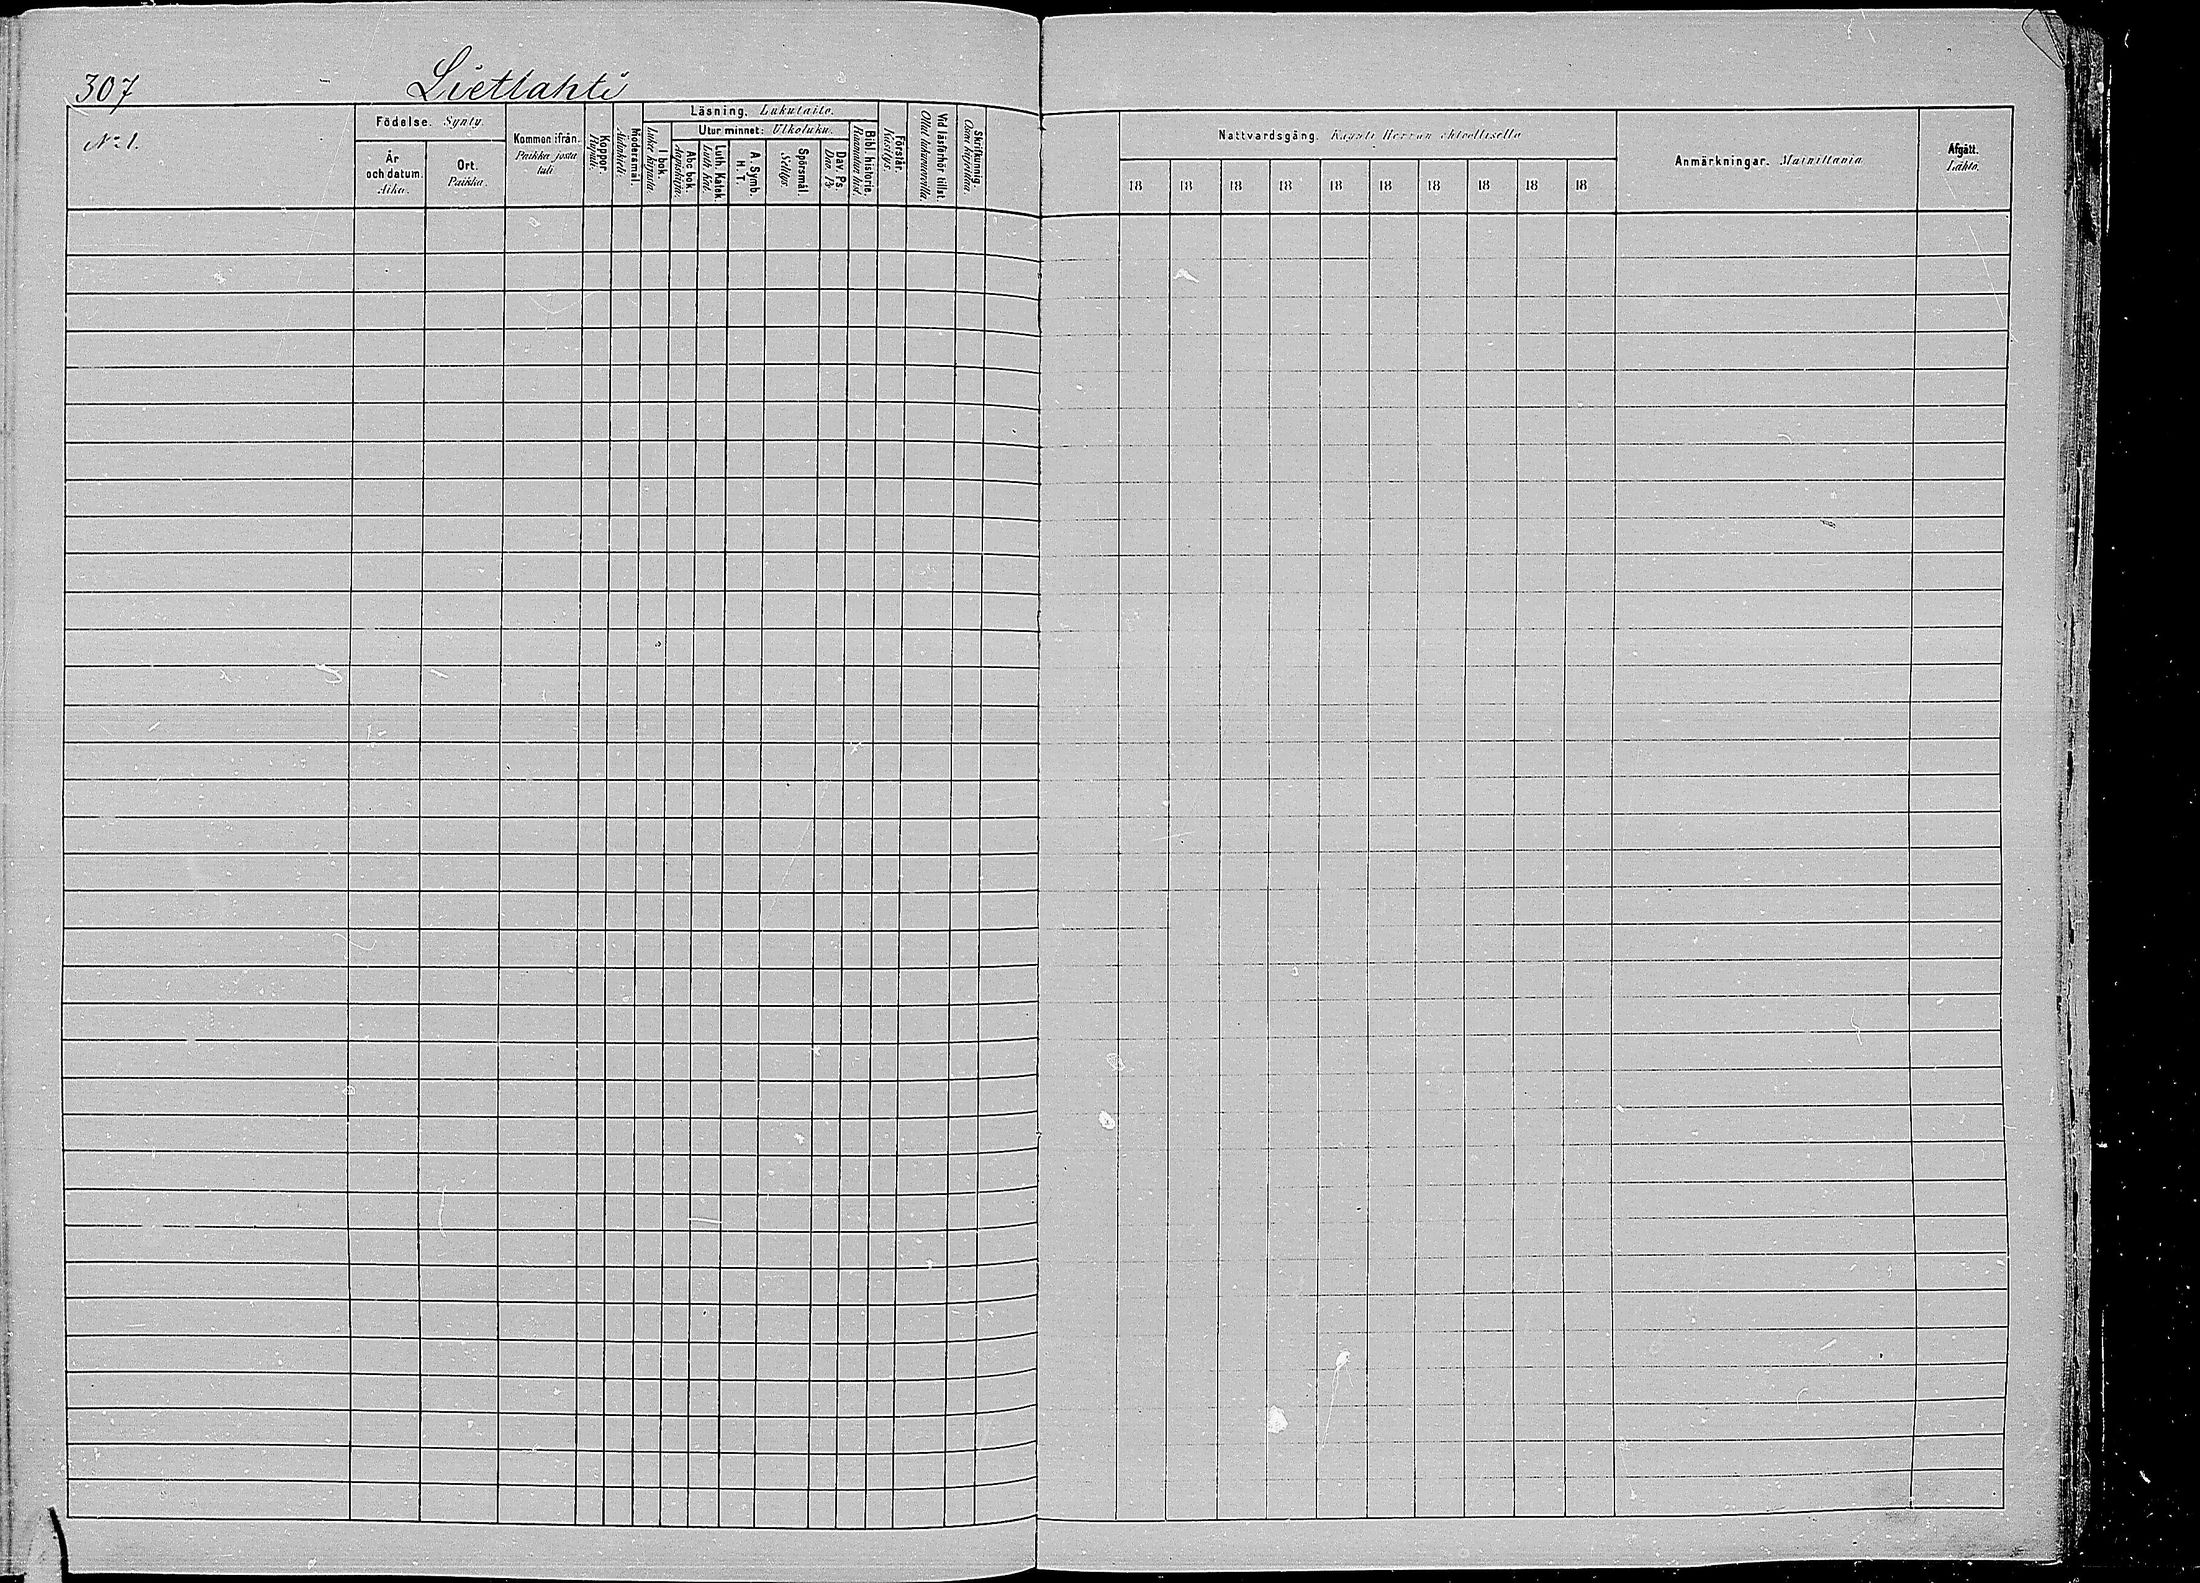 307 Lietlahti
No 1.
Födelse. Synty.
År och datum. Aika.
Ort. Paikka.
Kommen ifrån. Paikka josta tuli
Koppor. Rupuli.
Modersmål. Äidinkieli.
Läsning. Lukutaito.
I bok. Lukee kirjasta.
Utur minnet: Ulkoluku.
Abc bok. Aapiskirja.
Luth. Katek. Luth. Kat.
A. Symb. H. T.
Spörsmål. Selitys.
Dav. Ps. Dav. Ps.
Bibl. historie. Raamatun hist.
Förstår. Käsitys.
Vid läsförhör tillst. Ollut lukuwuorolla.
Skrifkunnig. Osaa kirjoittaa.
Nattvardsgång. Käynti Herran ehtoollisella
18 18 18 18 18 18 18 18 18 18
Anmärkningar. Mainittavia
Afgått. Lähtö.